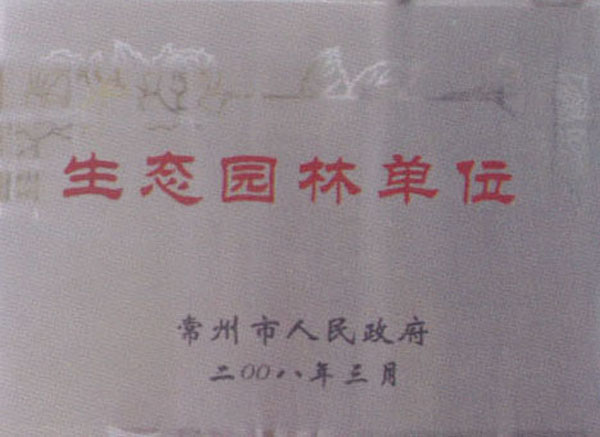 生态园林单位
常州市人民政府
二00八年三月